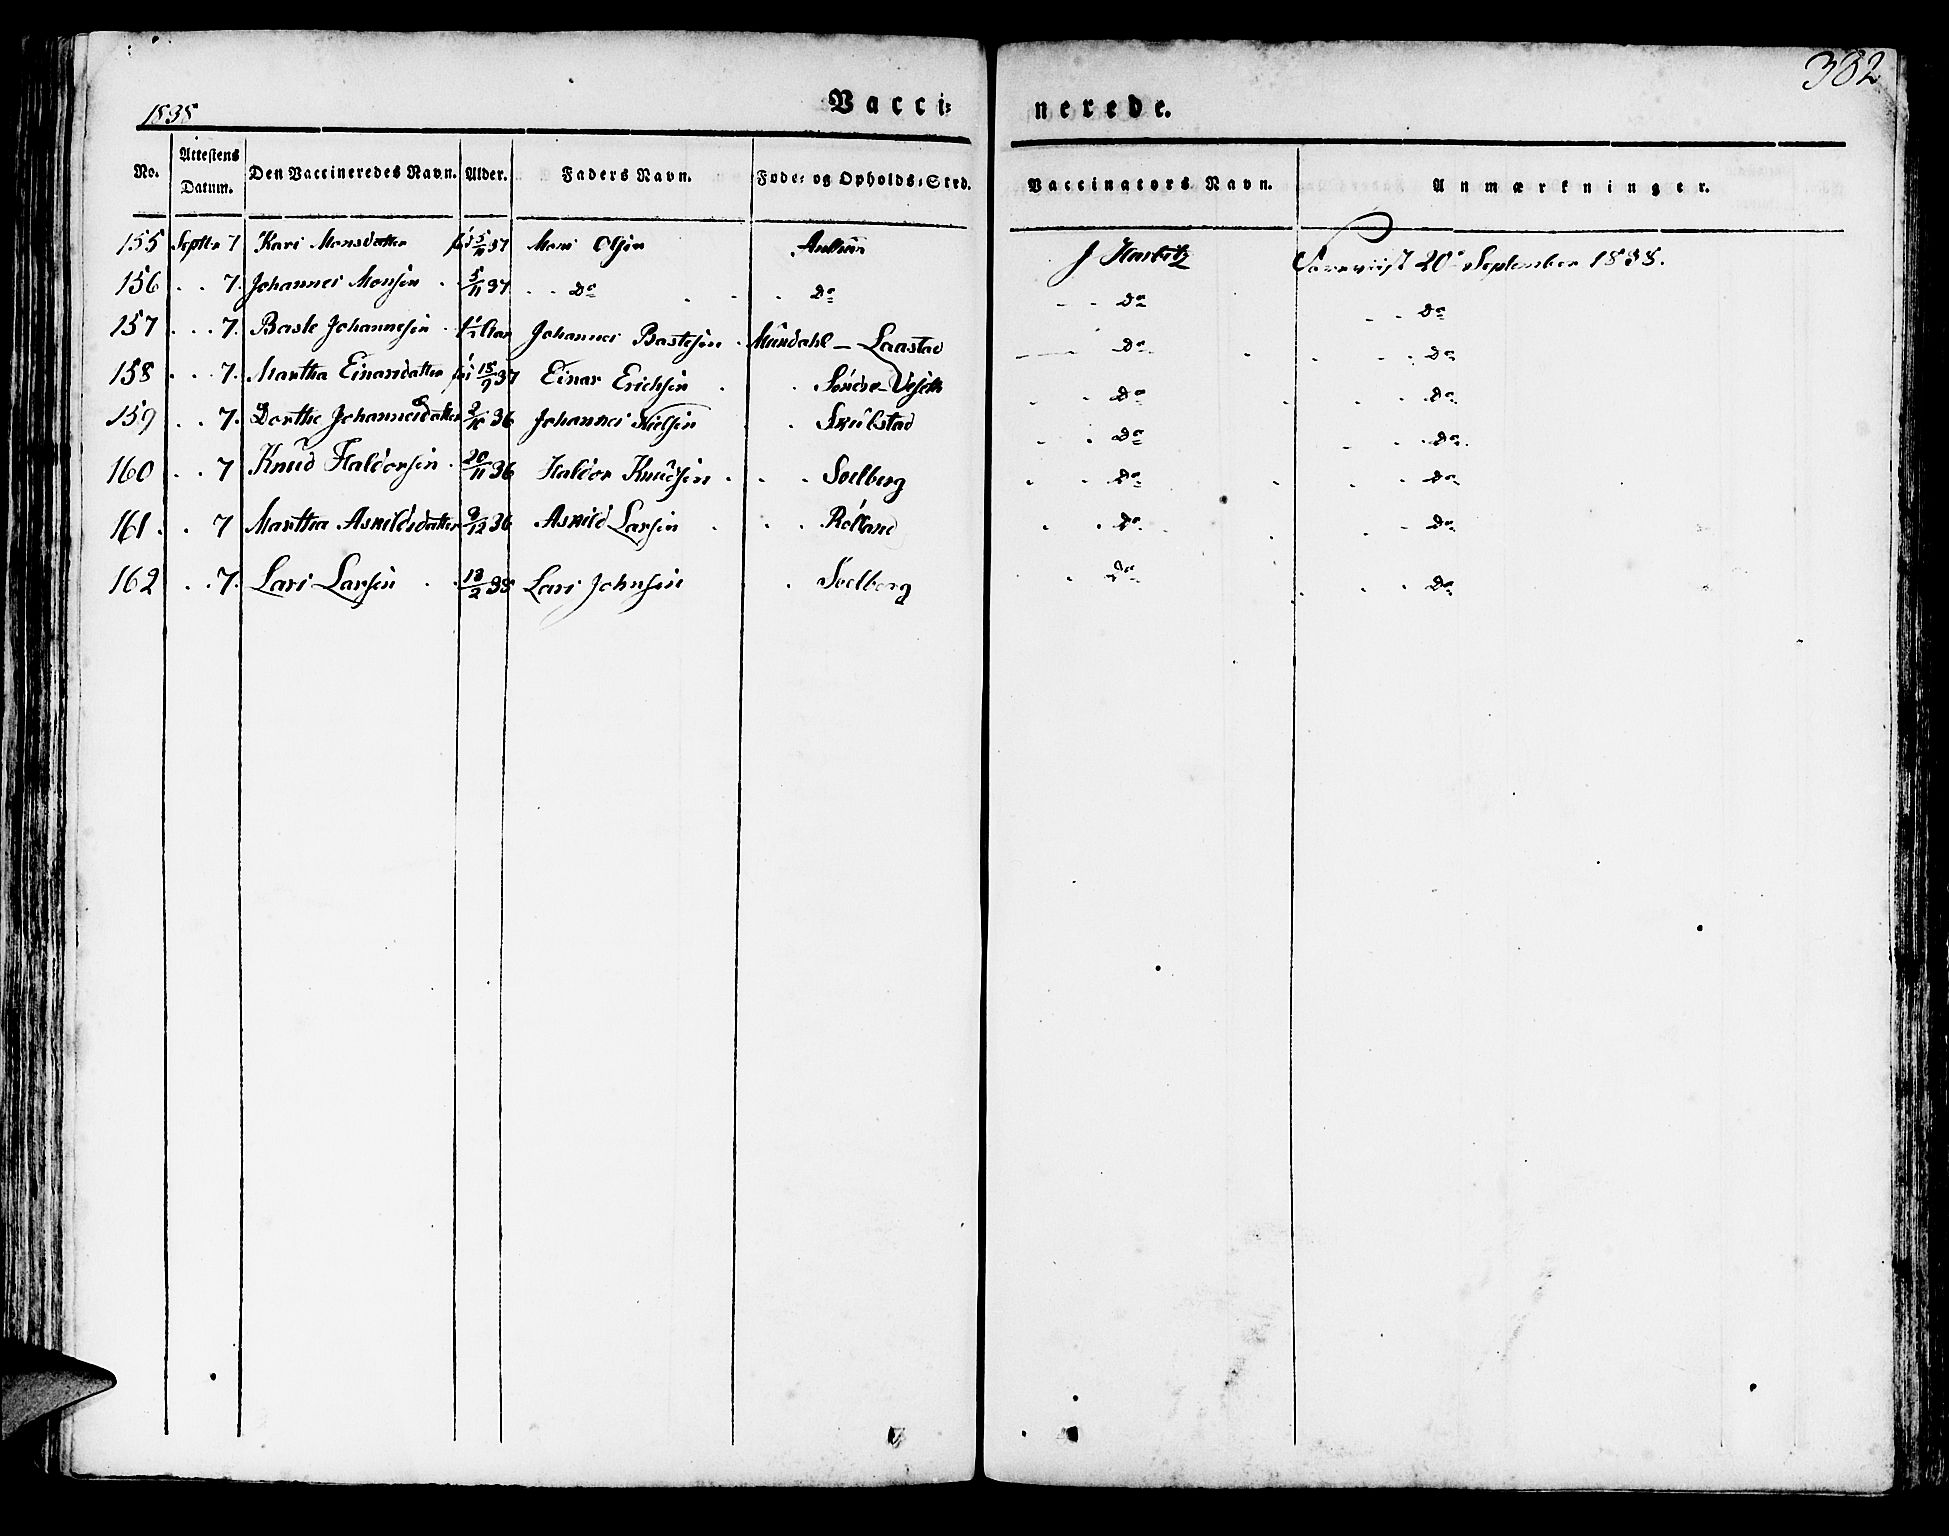 382
1838
Vacci= nerede.
No. Attestens Datum. Den Vaccineredes Navn. Alder. Faders Navn. Føde- og Opholds-Sted. Vaccinators Navn. Anmærkninger.
155 Septbr 7 Kari Monsdatter 5/11 37 Mons Olsen J Harbitz Foreviist 20de September 1838.
156 . . 7. Johannes Monsen 5/11 37 . . Do . . Do - - Do - - Do
157 . . . 7. Baste Johannesen 1 1/2 Aar Johannes Bastesen Mundahl - Laastad Do Do
158 . . 7. Martha Einarsdatter 18/9 37 Einar Erichsen Søndre Do Do
159 . . 7. Dorthe Johannesdatter 2/10 36 Johannes Nielsen Do Do
160 . . 7 Knud Haldorsen 20/11 36 Haldor Knudsen Soelberg Do Do
161 . . 7 Martha Asmildsdatter 9/12 36 Asmild Larsen Rølland Do Do
162 . . 7. Lars Larsen 18/2 38 Lars Johnsen Soelberg Do Do